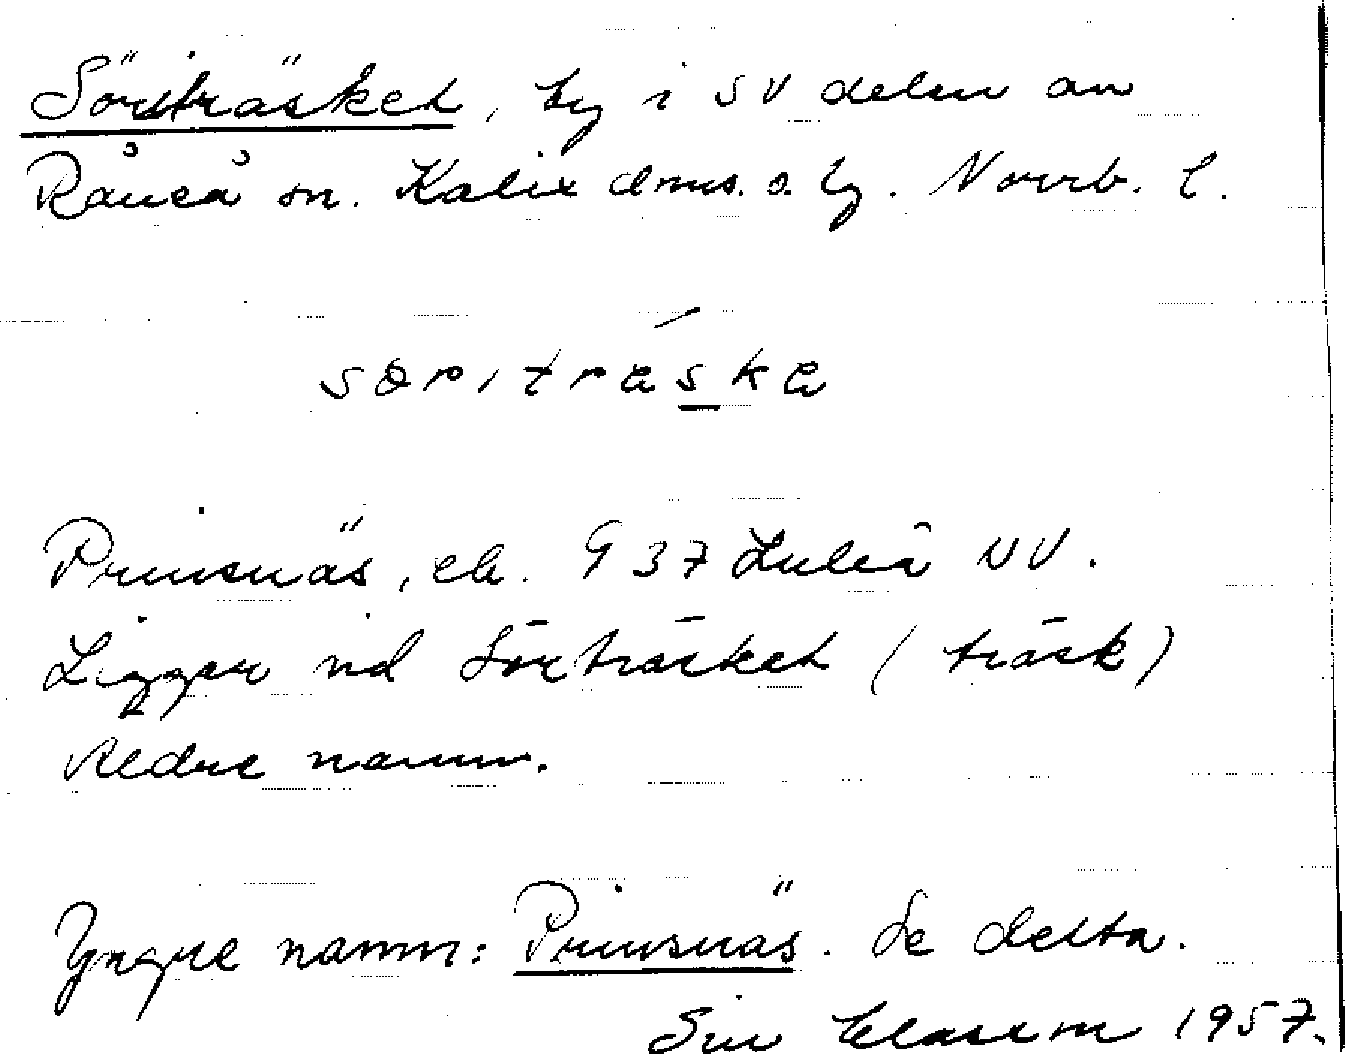 Sörträsket, by i SV delen av
Råneå sn. Kalix dms. o. lg. Norrb. l.
særıtrǽska
Prinsnäs, ek. 937 Luleå NV.
Ligger vid Sörträsket (träsk)
Äldre namn.
Yngre namn: Prinsnäs. Se detta.
1957.